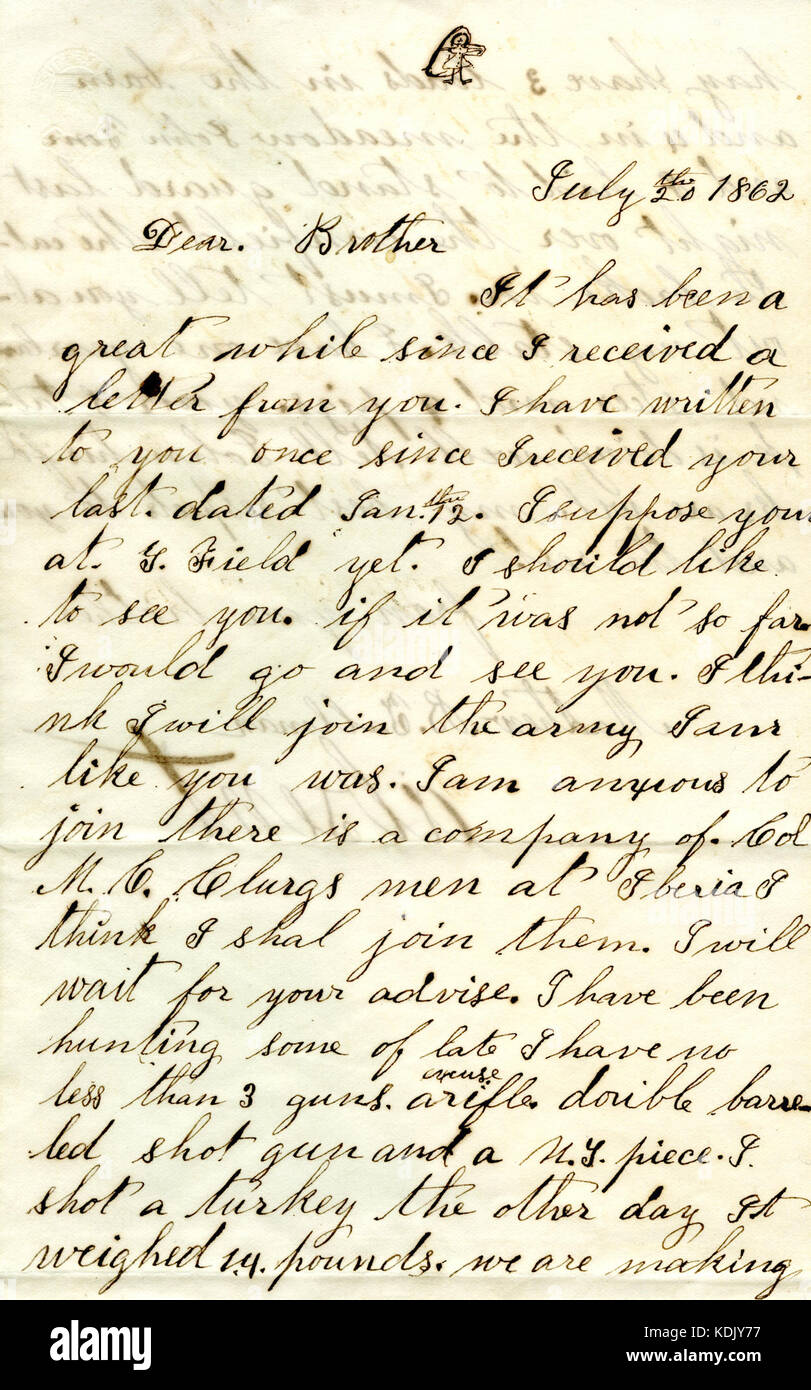 July 20th 1862
Dear. Brother
It has been a
great while since I received a
letter from you. I have written
to you once since I received your
last. dated Jan. 12th. I suppose you
at. Field yet. I should like
to see you. if it was not so far.
I would go and see you. I thi-
nk I will join the army I am
like you was. I am anxious to
join there is a company of. Col
M. C. Clurgs men at Iberia I
think I shal join them. I will
wait for your advise. I have been
hunting some of late I have no
less than 3 guns. a rifle. double barre-
led shot gun and a piece. I
shot a turkey the other day It
weighed 14. pounds. we are making
alamy
Image ID: KDJY77
www.alamy.com